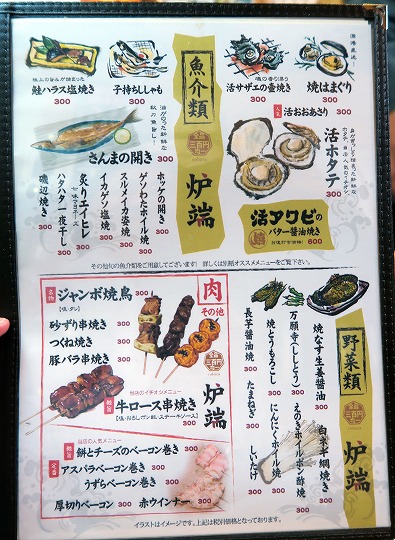 魚介類
炉端
全品
三百円
極上の旨みが詰まった
鮭ハラス塩焼き
300
子持ちししゃも
300
磯の香り漂う
活サザエの壷焼き
300
焼はまぐり
300
人気
活おおあさり
300
活ホタテ
300
さんまの開き
300
ホッケの開き
300
ゲソわたホイル焼
300
スルメイカ姿焼
300
イカゲソ塩焼
300
炙りエイヒレ
300
ハタハタ一夜干し
300
磯辺焼き
300
活アワビの
バター醤油焼き
600
その他旬の魚介類をご用意しております! 詳しくは別紙オススメメニューをご覧下さい。
肉
その他
炉端
全品
三百円
名物
ジャンボ焼鳥
【塩・タレ】
300
砂ずり串焼き
300
つくね焼き
300
豚バラ串焼き
300
当店のイチオシメニュー
牛ロース串焼き
【塩・おろしポン酢・ステーキソース】
300
当店の人気メニュー
餅とチーズのベーコン巻き
300
定番
アスパラベーコン巻き
300
うずらベーコン巻き
300
厚切りベーコン
300
赤ウインナー
300
野菜類
炉端
全品
三百円
焼なす生姜醤油
300
万願寺(ししとう)
300
焼とうもろこし
300
長芋醤油焼
300
白ネギ網焼き
300
えのきホイルポン酢焼
300
にんにくホイル焼
300
たまねぎ
300
しいたけ
300
イラストはイメージです。上記は税付価格となっております。